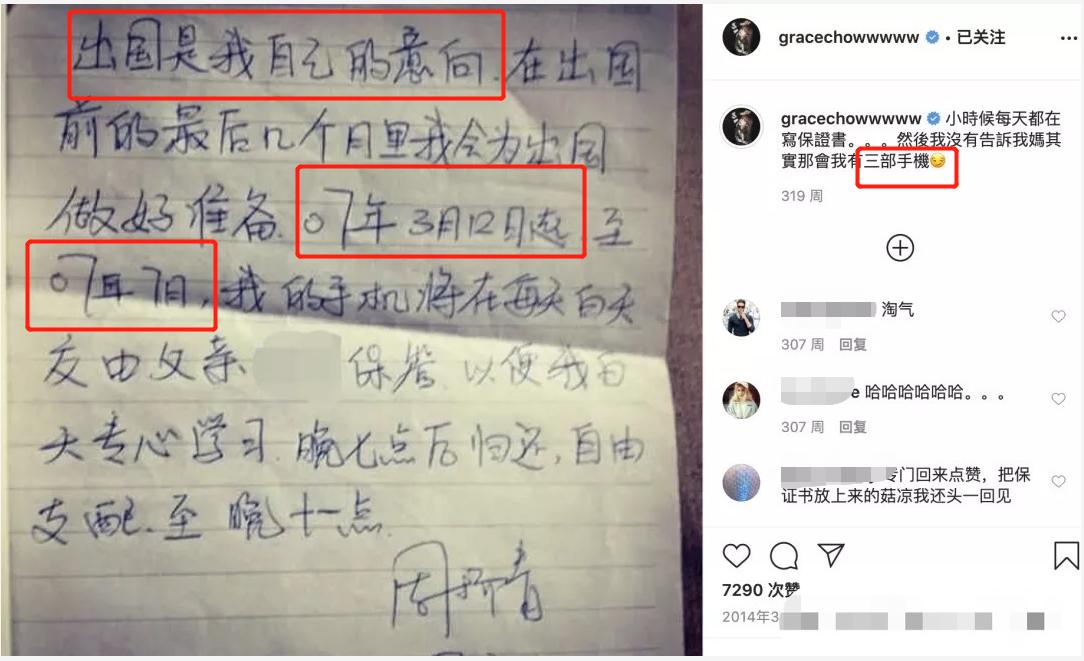 出国是我自己的意向.在出国
前的最后几个月里我会为出国
做好准备.07年3月12日起.至
07年7月,我的手机将在每天白天
交由父亲 保管.以便我白
天专心学习.晚七点后归还,自由
支配.至晚十一点.
周扬青
gracechowwwww • 已关注 ...
gracechowwwww 小時候每天都在
寫保證書。。。然後我沒有告訴我媽其
實那會我有三部手機😏
319 周
淘气
307 周 回复
e 哈哈哈哈哈哈。。。
307 周 回复
专门回来点赞，把保
证书放上来的菇凉我还头一回见
7290 次赞
2014年3